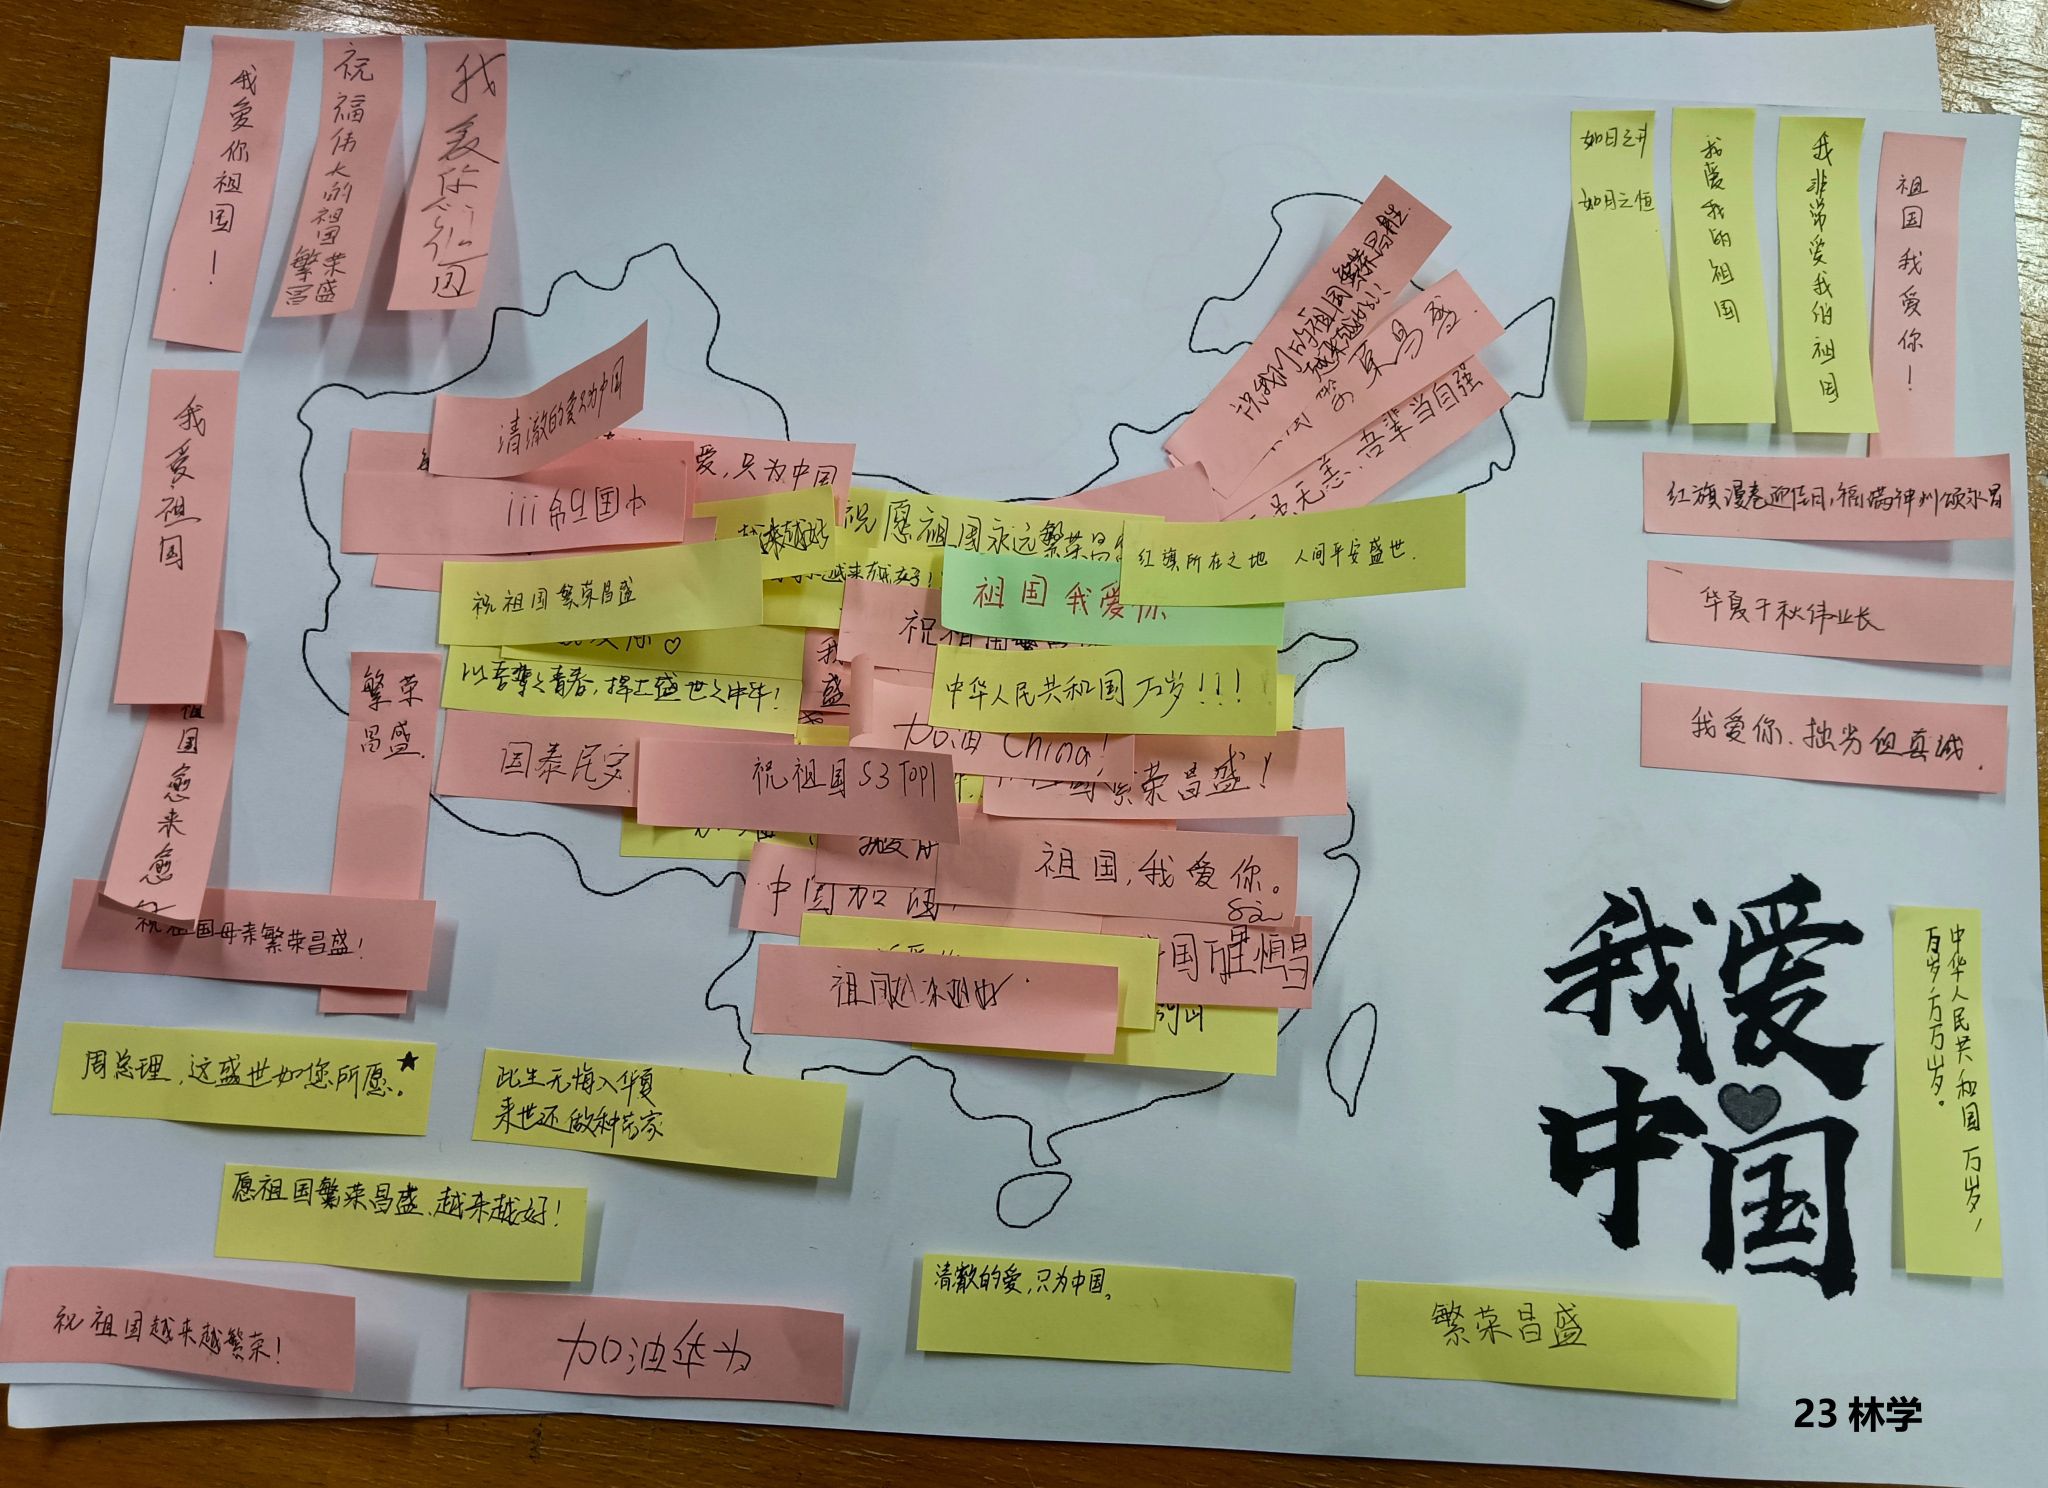 我爱你祖国！
祝福伟大的祖国
繁荣
昌盛
我爱祖国
祖国愈来愈
祝祖国母亲繁荣昌盛！
繁荣
昌盛.
清澈的爱只为中国
爱，只为中国
越来越好
祝愿祖国永远繁荣昌
越来越好！
祝祖国繁荣昌盛
以吾辈之青春，捍卫盛世之中华！
国泰民安.
祝祖国S3 TOP1
祖国我爱你
红旗所在之地 人间平安盛世.
中华人民共和国万岁！！！
加油 China！
繁荣昌盛！
中国加油
祖国，我爱你。
祝我们的祖国繁荣昌盛.
越来越好！！
荣昌盛.
无恙.吾辈当自强
如日之升
如月之恒
我爱我的祖国
我非常爱我的祖国
祖国我爱你！
红旗漫卷迎佳日，福满神州颂永昌
华夏千秋伟业长
我爱你.拙劣但真诚.
周总理，这盛世如您所愿。★
此生无悔入华夏
来世还做种花家
愿祖国繁荣昌盛、越来越好！
祝祖国越来越繁荣！
加油华为
清澈的爱，只为中国。
繁荣昌盛
我爱
中国
中华人民共和国万岁，
万岁，万万岁。
23 林学